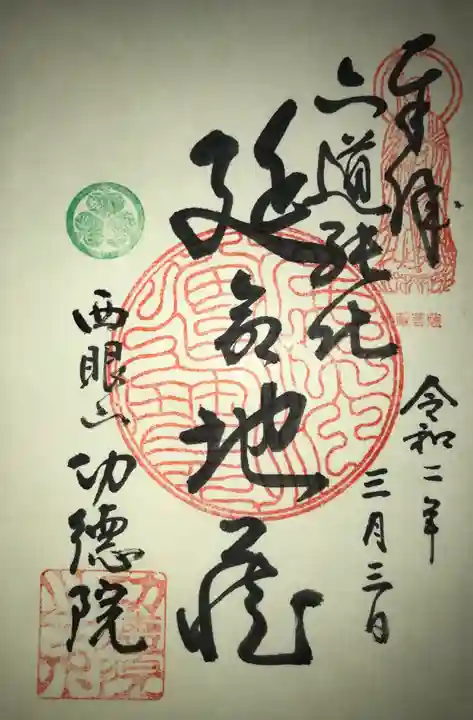 奉拝
令和二年
三月三日
六道能化
延命地蔵
西眼山 功徳院